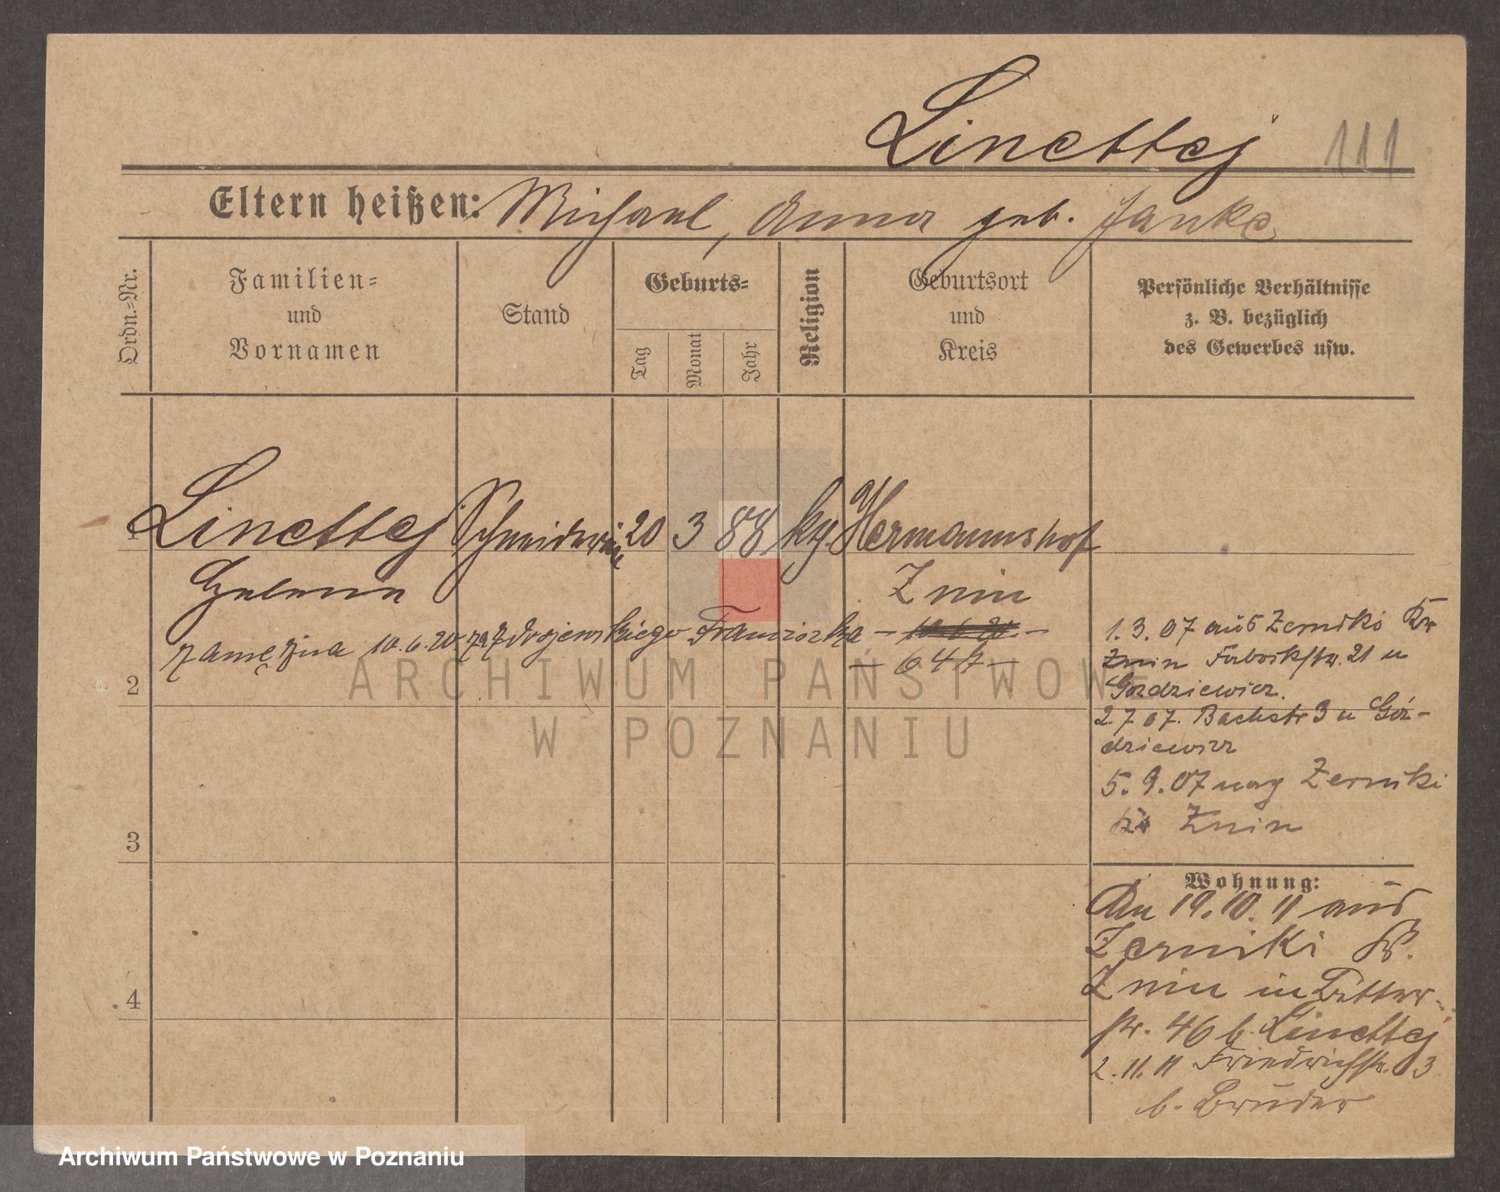 Linettej 111
Eltern heißen: Michael, Anna geb. Janke
Ordn.-Nr.
Familien-
und
Vornamen
Stand
Geburts-
Tag
Monat
Jahr
Religion
Geburtsort
und
Kreis
Persönliche Verhältnisse
z. B. bezüglich
des Gewerbes usw.
1 Linettej Schneiderin 20 3 88 kg. Hermannshof
Helena Znin
zamężna 10.6.20 za Zdrojewskiego Franciszka
— 647 —
2
3
4
1. 3. 07 aus Zerniki Kr
Znin Fabrikstr. 21 u
Gozdziewicz.
2 7 07. Bachstr 3 u Góz-
dziewicz
5. 9. 07 nach Zerniki
Kr Znin
Wohnung:
Am 19. 10. 11 aus
Zerniki Kr.
Znin in
str. 46 b. Linettej
2. 11. 11 Friedrichstr. 3
b. Bruder
ARCHIWUM PAŃSTWOWE
W POZNANIU
Archiwum Państwowe w Poznaniu